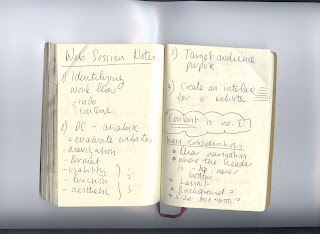 Web Session Notes
1) Identifying
work flow
- info
- content
2) DC - analyse
- evaluate websites
- navigation
- format
- usability
- function
- aesthetic
3) Target audience
purpose
4) Create an interface
for a website
Content is no. 1
main considerations
Clear navigation
where the header
is top never
bottom
Layout
Background?
size 800x600?